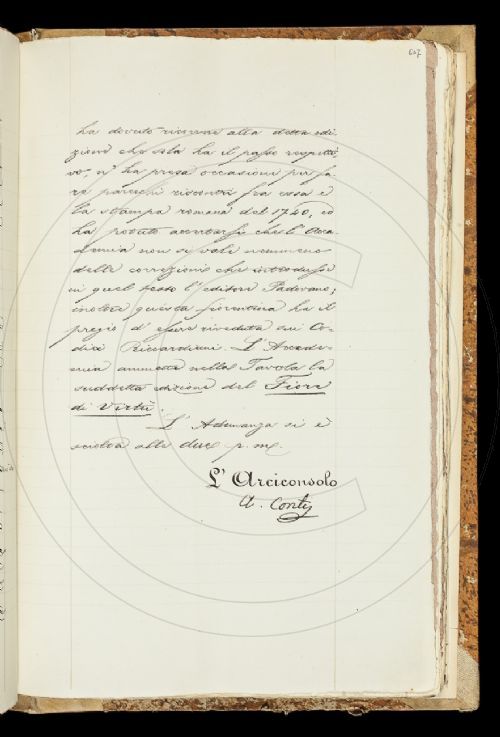 647
ha dovuto ricorrere alla detta edi-
zione che sola ha il passo rispetti-
vo, n'ha presa occasione per fa-
re parecchi riscontri fra essa e
la stampa romana del 1740, ed
ha potuto accertarsi che l'Acca-
demia non si valse nemmeno
delle correzioni che introdusse
in quel testo l'editore Padovano;
inoltre questa fiorentina ha il
pregio d'essere riveduta sui Co-
dici Riccardiani. L'Accade-
mia ammette nella Tavola la
suddetta edizione del Fiore
di Virtù.
L'Adunanza si è
sciolta alle due p. m.
L'Arciconsolo
A. Conti